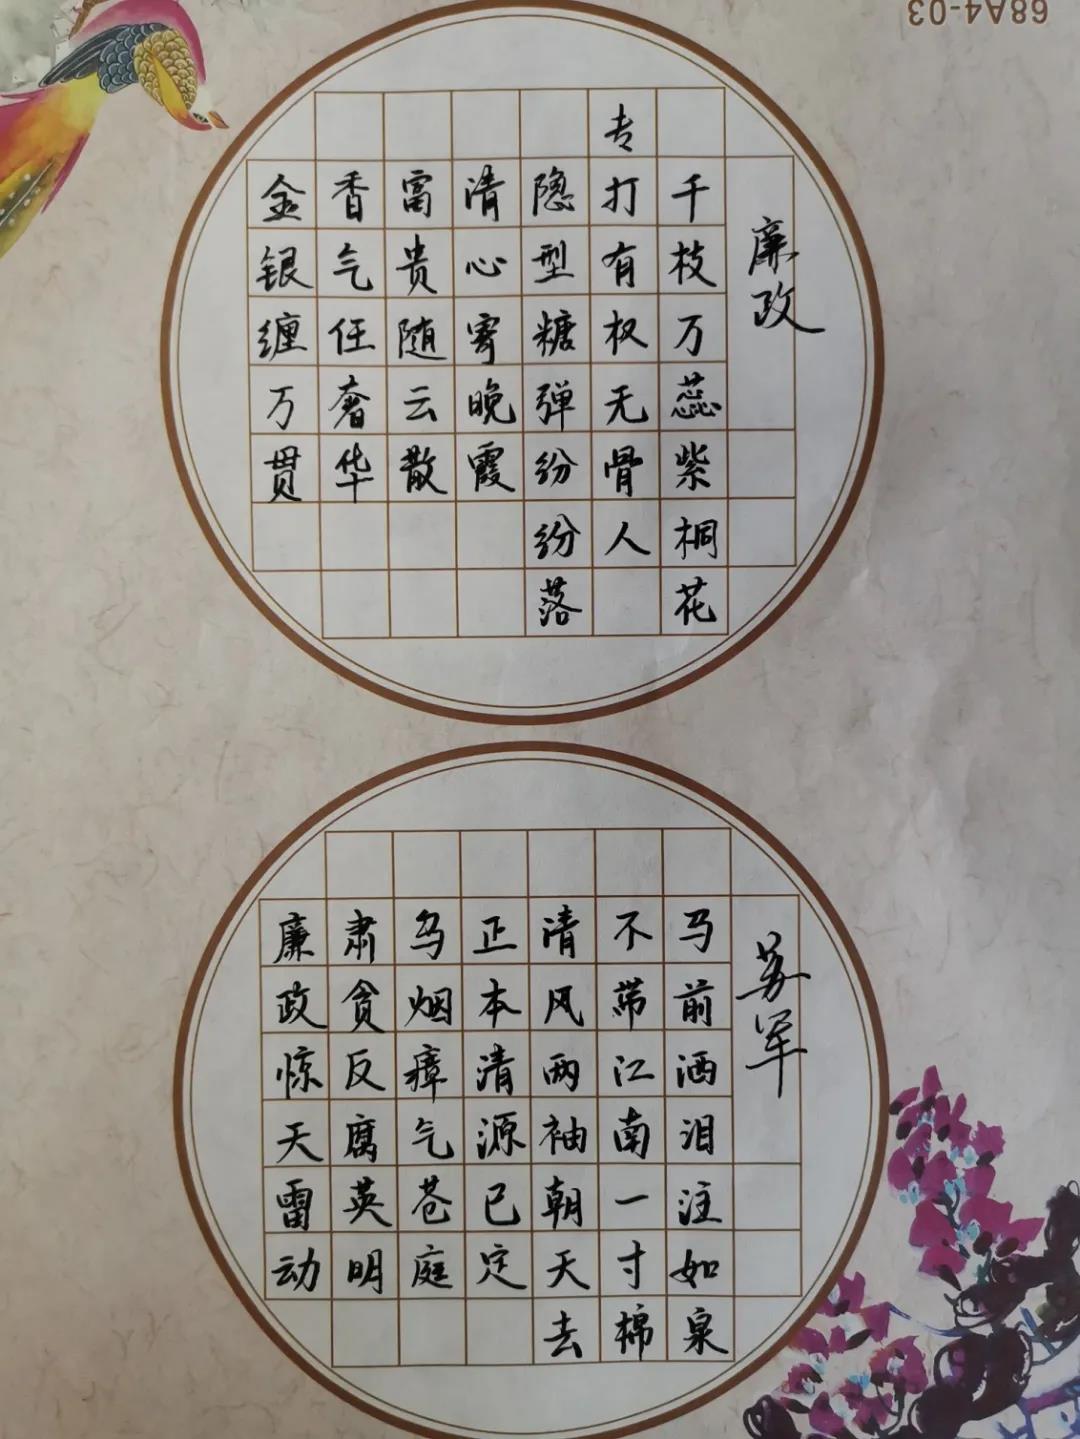 68A4-03
廉政
千枝万蕊紫桐花
专打有权无骨人
隐型糖弹纷纷落
清心寄晚霞
富贵随云散
香气任奢华
金银缠万贯
苏军
马前洒泪注如泉
不带江南一寸棉
清风两袖朝天去
正本清源已定
乌烟瘴气苍庭
肃贪反腐英明
廉政惊天雷动